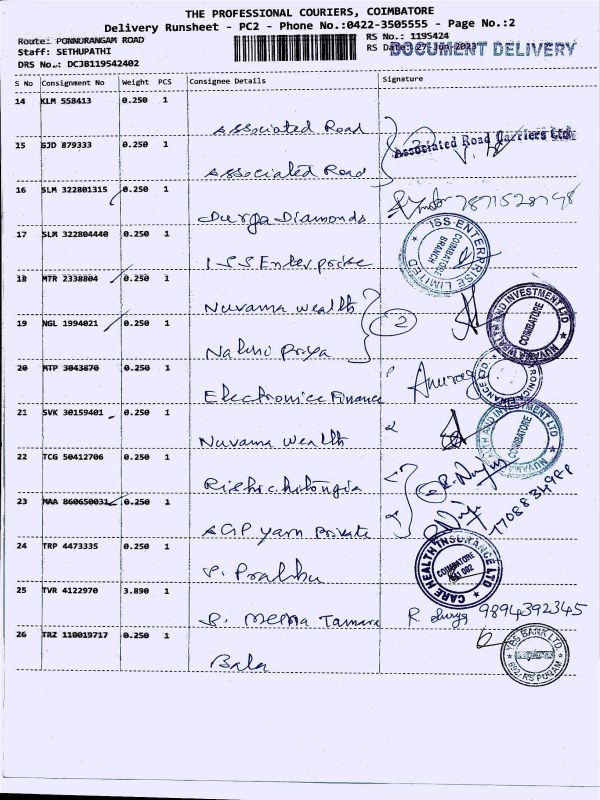 THE PROFESSIONAL COURIERS, COIMBATORE
Delivery Runsheet - PC2 - Phone No.:0422-3505555 - Page No.:2
Route: PONNURANGAM ROAD
Staff: SETHUPATHI
DRS No.: DCJB119542402
RS No.: 1195424
RS Date: 27-Jun-2023
DOCUMENT DELIVERY
S No Consignment No Weight PCS Consignee Details Signature
14 KLM 558413 0.250 1
Associated Road
15 GJD 879333 0.250 1
Associated Road Carriers Ltd.
Associated Road
16 SLM 322801315 0.250 1
Durga Diamonds
17 SLM 322804440 0.250 1
ISS Enterprise
ISS ENTERPRISE LIMITED
COIMBATORE BRANCH
18 MTR 2338804 0.250 1
Nuvama wealth
19 NGL 1994021 0.250 1
2
Nalini Priya
NUVAMA WEALTH AND INVESTMENT LTD
COIMBATORE
20 MTP 3043870 0.250 1
Electronica Finance
Anurag
21 SVK 30159401 0.250 1
Nuvama wealth
COIMBATORE
22 TCG 50412706 0.250 1
23 MAA 860650031 0.250 1
AGP yarn private
24 TRP 4473335 0.250 1
P. Prabhu
CARE HEALTH INSURANCE LTD
COIMBATORE
25 TVR 4122970 3.890 1
S. meena Tamara
9894392345
26 TRZ 110019717 0.250 1
Bala
YES BANK LTD.